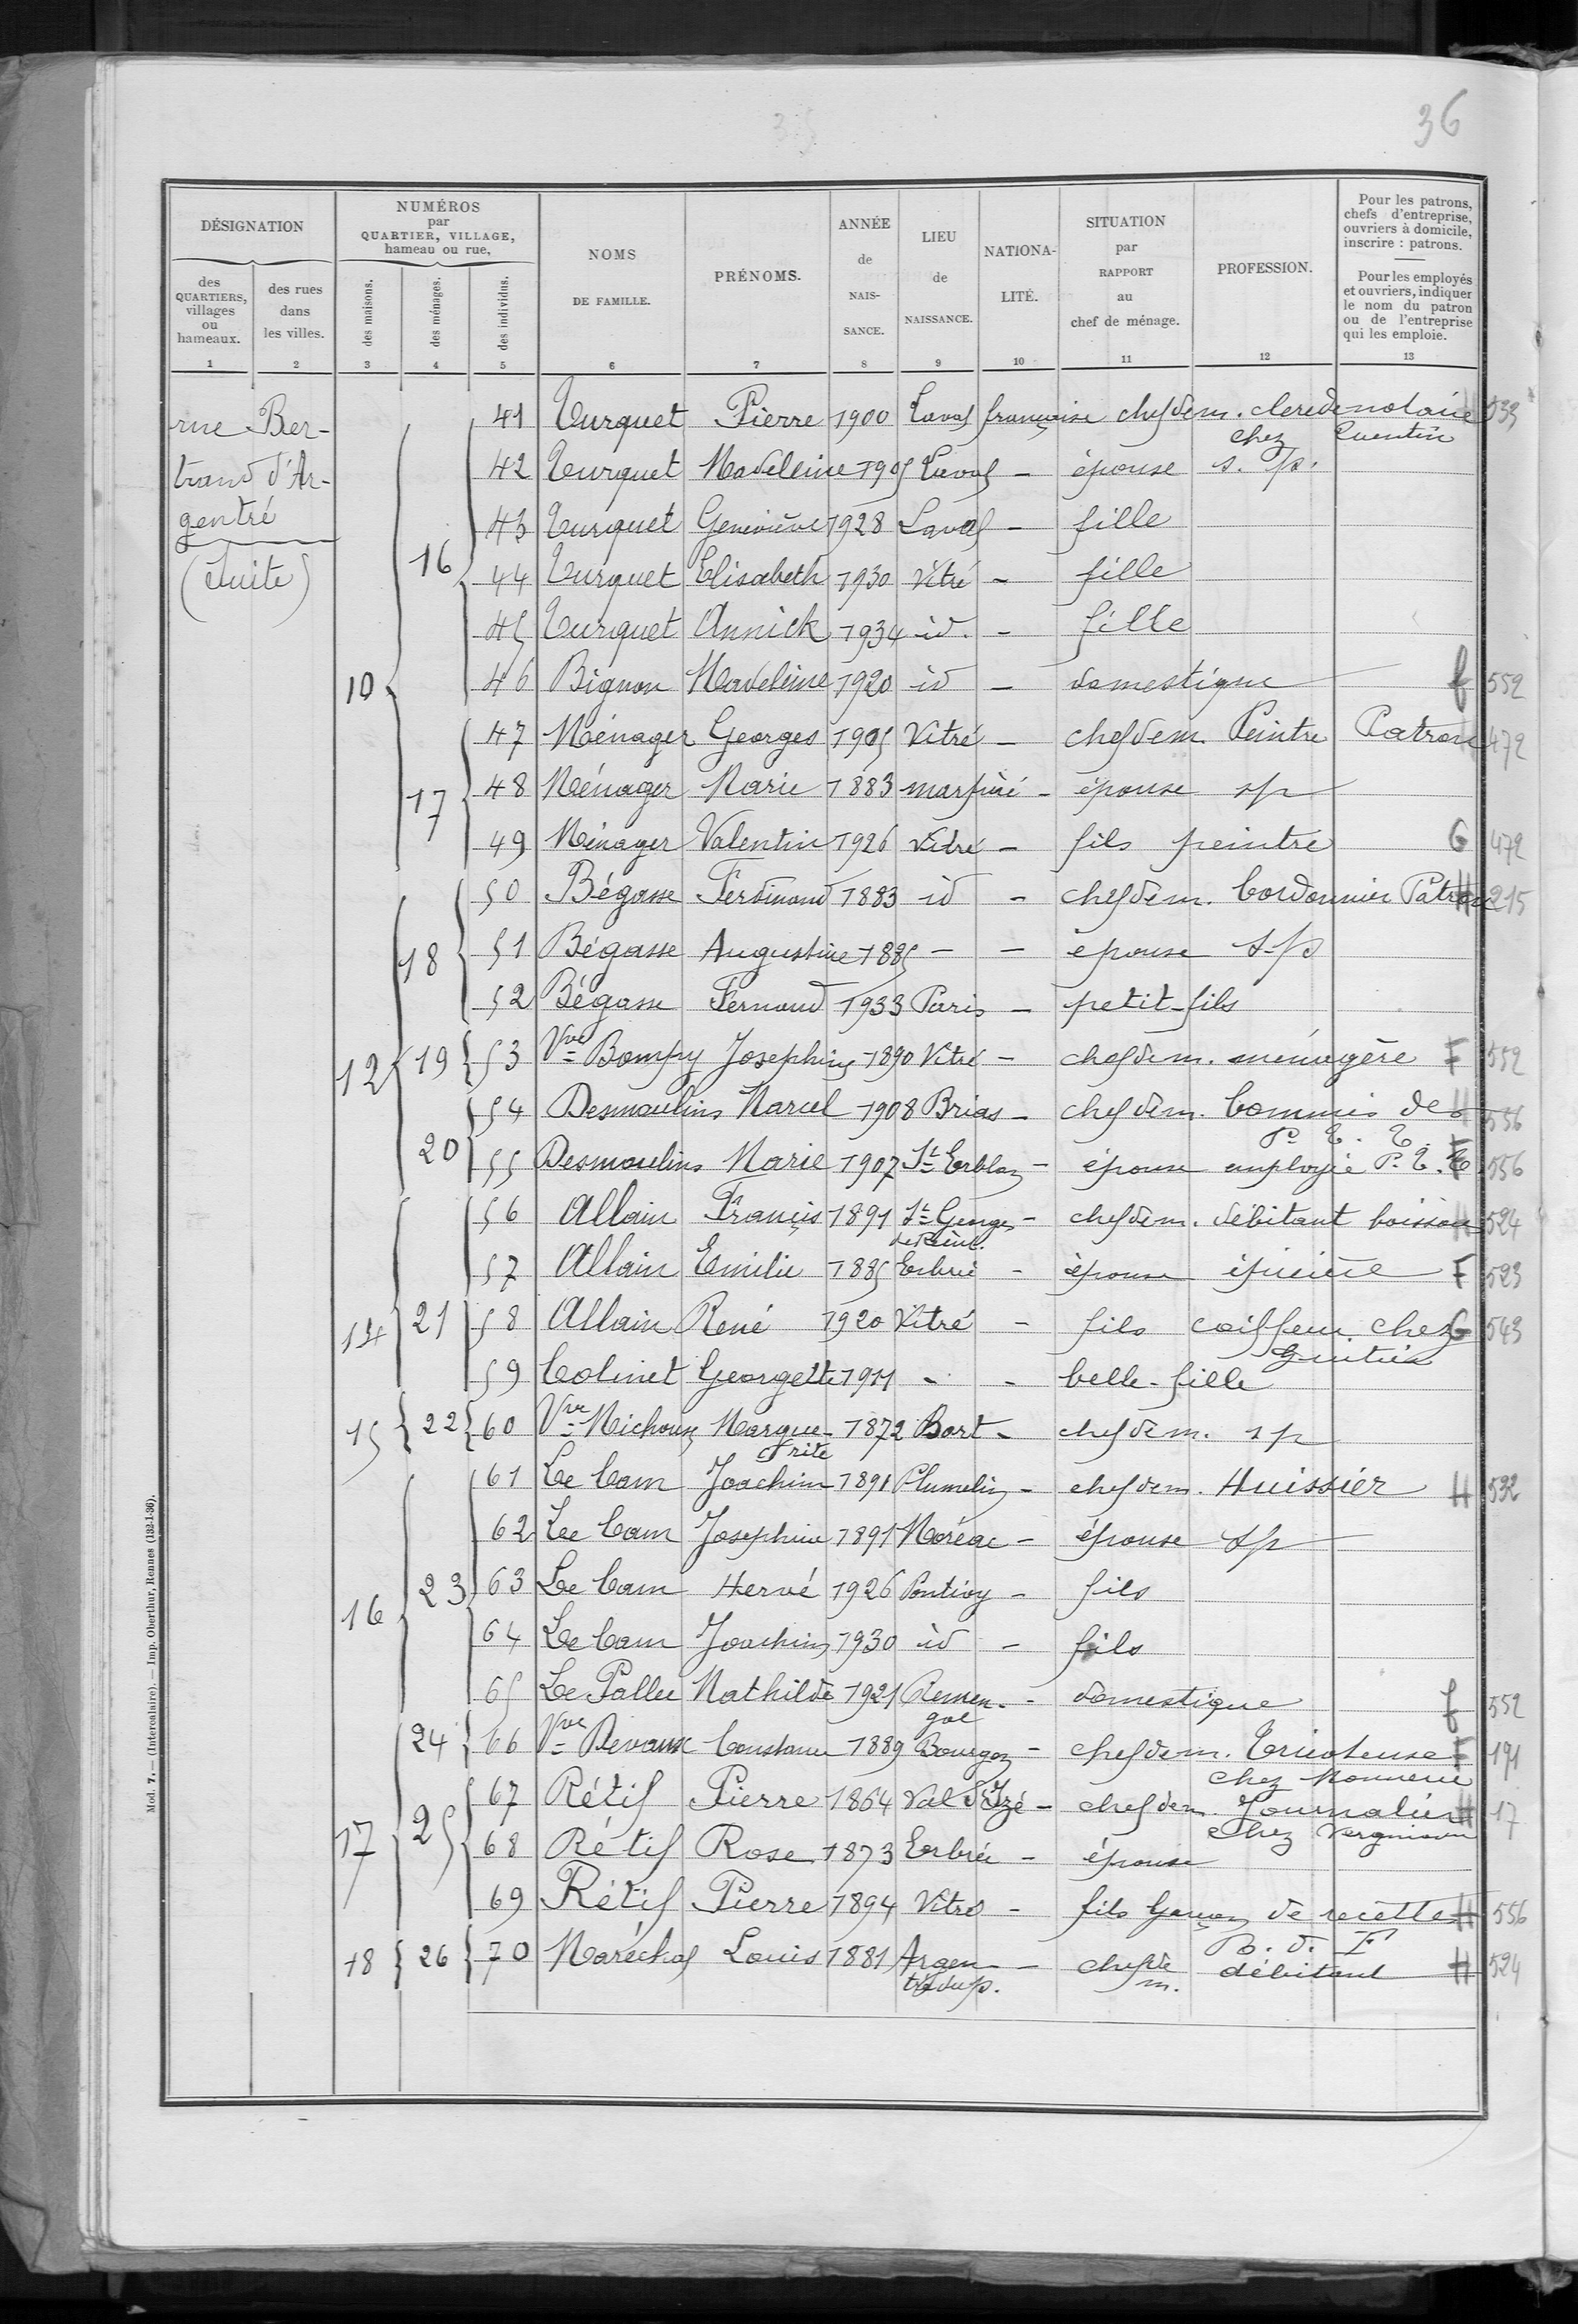 36
DÉSIGNATION
des QUARTIERS, villages ou hameaux.
des rues dans les villes.
NUMÉROS par QUARTIER, VILLAGE, hameau ou rue.
des maisons.
des ménages.
des individus.
NOMS DE FAMILLE.
PRÉNOMS.
ANNÉE de NAIS-SANCE.
LIEU de NAISSANCE.
NATIONA-LITÉ.
SITUATION par RAPPORT au chef de ménage.
PROFESSION.
Pour les patrons, chefs d'entreprise, ouvriers à domicile, inscrire : patrons.
Pour les employés et ouvriers, indiquer le nom du patron ou de l'entreprise qui les emploie.
1 2 3 4 5 6 7 8 9 10 11 12 13
rue Ber-
trand d'Ar-
gentré
(Suite)
10
16
41 Turquet Pierre 1900 Laval française chef de m. clerc de notaire H 533
chez Quentin
42 Turquet Madeleine 1905 Laval - épouse s. p.
43 Turquet Geneviève 1928 Laval - fille
44 Turquet Elisabeth 1930 Vitré - fille
45 Turquet Annick 1934 id. - fille
46 Bignon Madeleine 1920 id - domestique f 552
17
47 Ménager Georges 1905 Vitré - chef de m. Peintre Patron 472
48 Ménager Marie 1883 marpiré - épouse sp
49 Ménager Valentin 1926 Vitré - fils peintre G 472
12
18
50 Bégasse Ferdinand 1883 id - chef de m. Cordonnier Patron H 215
51 Bégasse Augustine 1885 - - épouse s-p
52 Bégasse Fernand 1933 Paris - petit-fils
19 53 Vve Bompy Josephine 1890 Vitré - chef de m. ménagère F 552
20
54 Desmoulins Marcel 1908 Brias - chef de m. Commis de H 556
P. T. T.
55 Desmoulins Marie 1907 St Erblon - épouse employée P. T. T. F 556
14
21
56 Allain François 1891 St Georges - chef de m. débitant boisson H 524
de Reint.
57 Allain Emilie 1885 Erbrée - épouse épicière F 523
58 Allain René 1920 Vitré - fils coiffeur chez G 543
59 Colinet Georgette 1911 - - belle-fille
15 22 60 Vve Michoun Margue- 1872 Bort - chef de m. sp
rite
16
23
61 Le Cam Joachim 1891 Plumelin - chef de m. Huissier H 532
62 Le Cam Josephine 1891 Moréac - épouse sp
63 Le Cam Hervé 1926 Pontivy - fils
64 Le Cam Joachim 1930 id - fils
65 Le Pallec Mathilde 1921 Remen- - domestique f 552
gol
17
24 66 Vve Devaux Constance 1889 Bourgon - chef de m. Tricoteuse F 191
chez Monnerie
25
67 Rétif Pierre 1864 Val d'Izé - chef de m. Journalier H 17
chez Vergniaun
68 Rétif Rose 1873 Erbrée - épouse
69 Rétif Pierre 1894 Vitré - fils Garçon de recettes H 556
B. d. F
18 26 70 Maréchal Louis 1881 Argen- - chef de débitant H 524
tré du p. m.
Mod. 7. — (Intercalaire). — Imp. Oberthur, Rennes (132-1-36).